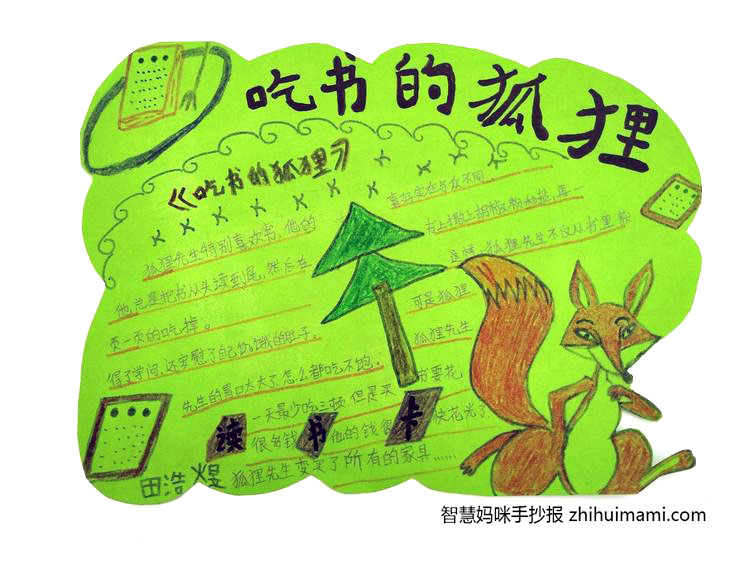 吃书的狐狸
《吃书的狐狸》
狐狸先生特别喜欢书,他的
喜好实在与众不同
他,总是把书从头读到尾,然后在
书上撒上胡椒粉和盐,再一
页一页的吃掉。
这样,狐狸先生不仅从书里获
得了学问,还安慰了自己饥饿的肚子。
可是狐狸
先生的胃口太大了,怎么都吃不饱。
狐狸先生
一天最少吃三顿,但是买
书要花
很多钱
他的钱很
快花光了
狐狸先生变卖了所有的家具……
读书卡
田浩
智慧妈咪手抄报 zhihuimami.com